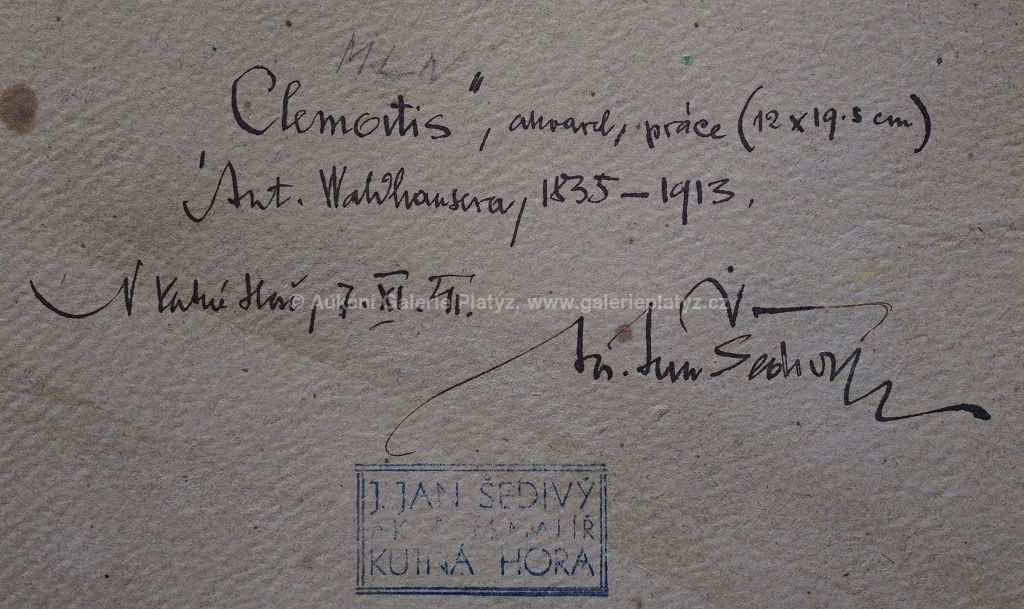 MLN
Clemortis", akvarel, práce (12 x 19.5 cm)
Ant. Waldhausera, 1835 – 1913.
V Kutné Hoře, 7. XI.
© Aukční Galerie Platýz, www.galerieplatyz.cz
Jan Šedivý
J. JAN ŠEDIVÝ
MALÍŘ
KUTNÁ HORA